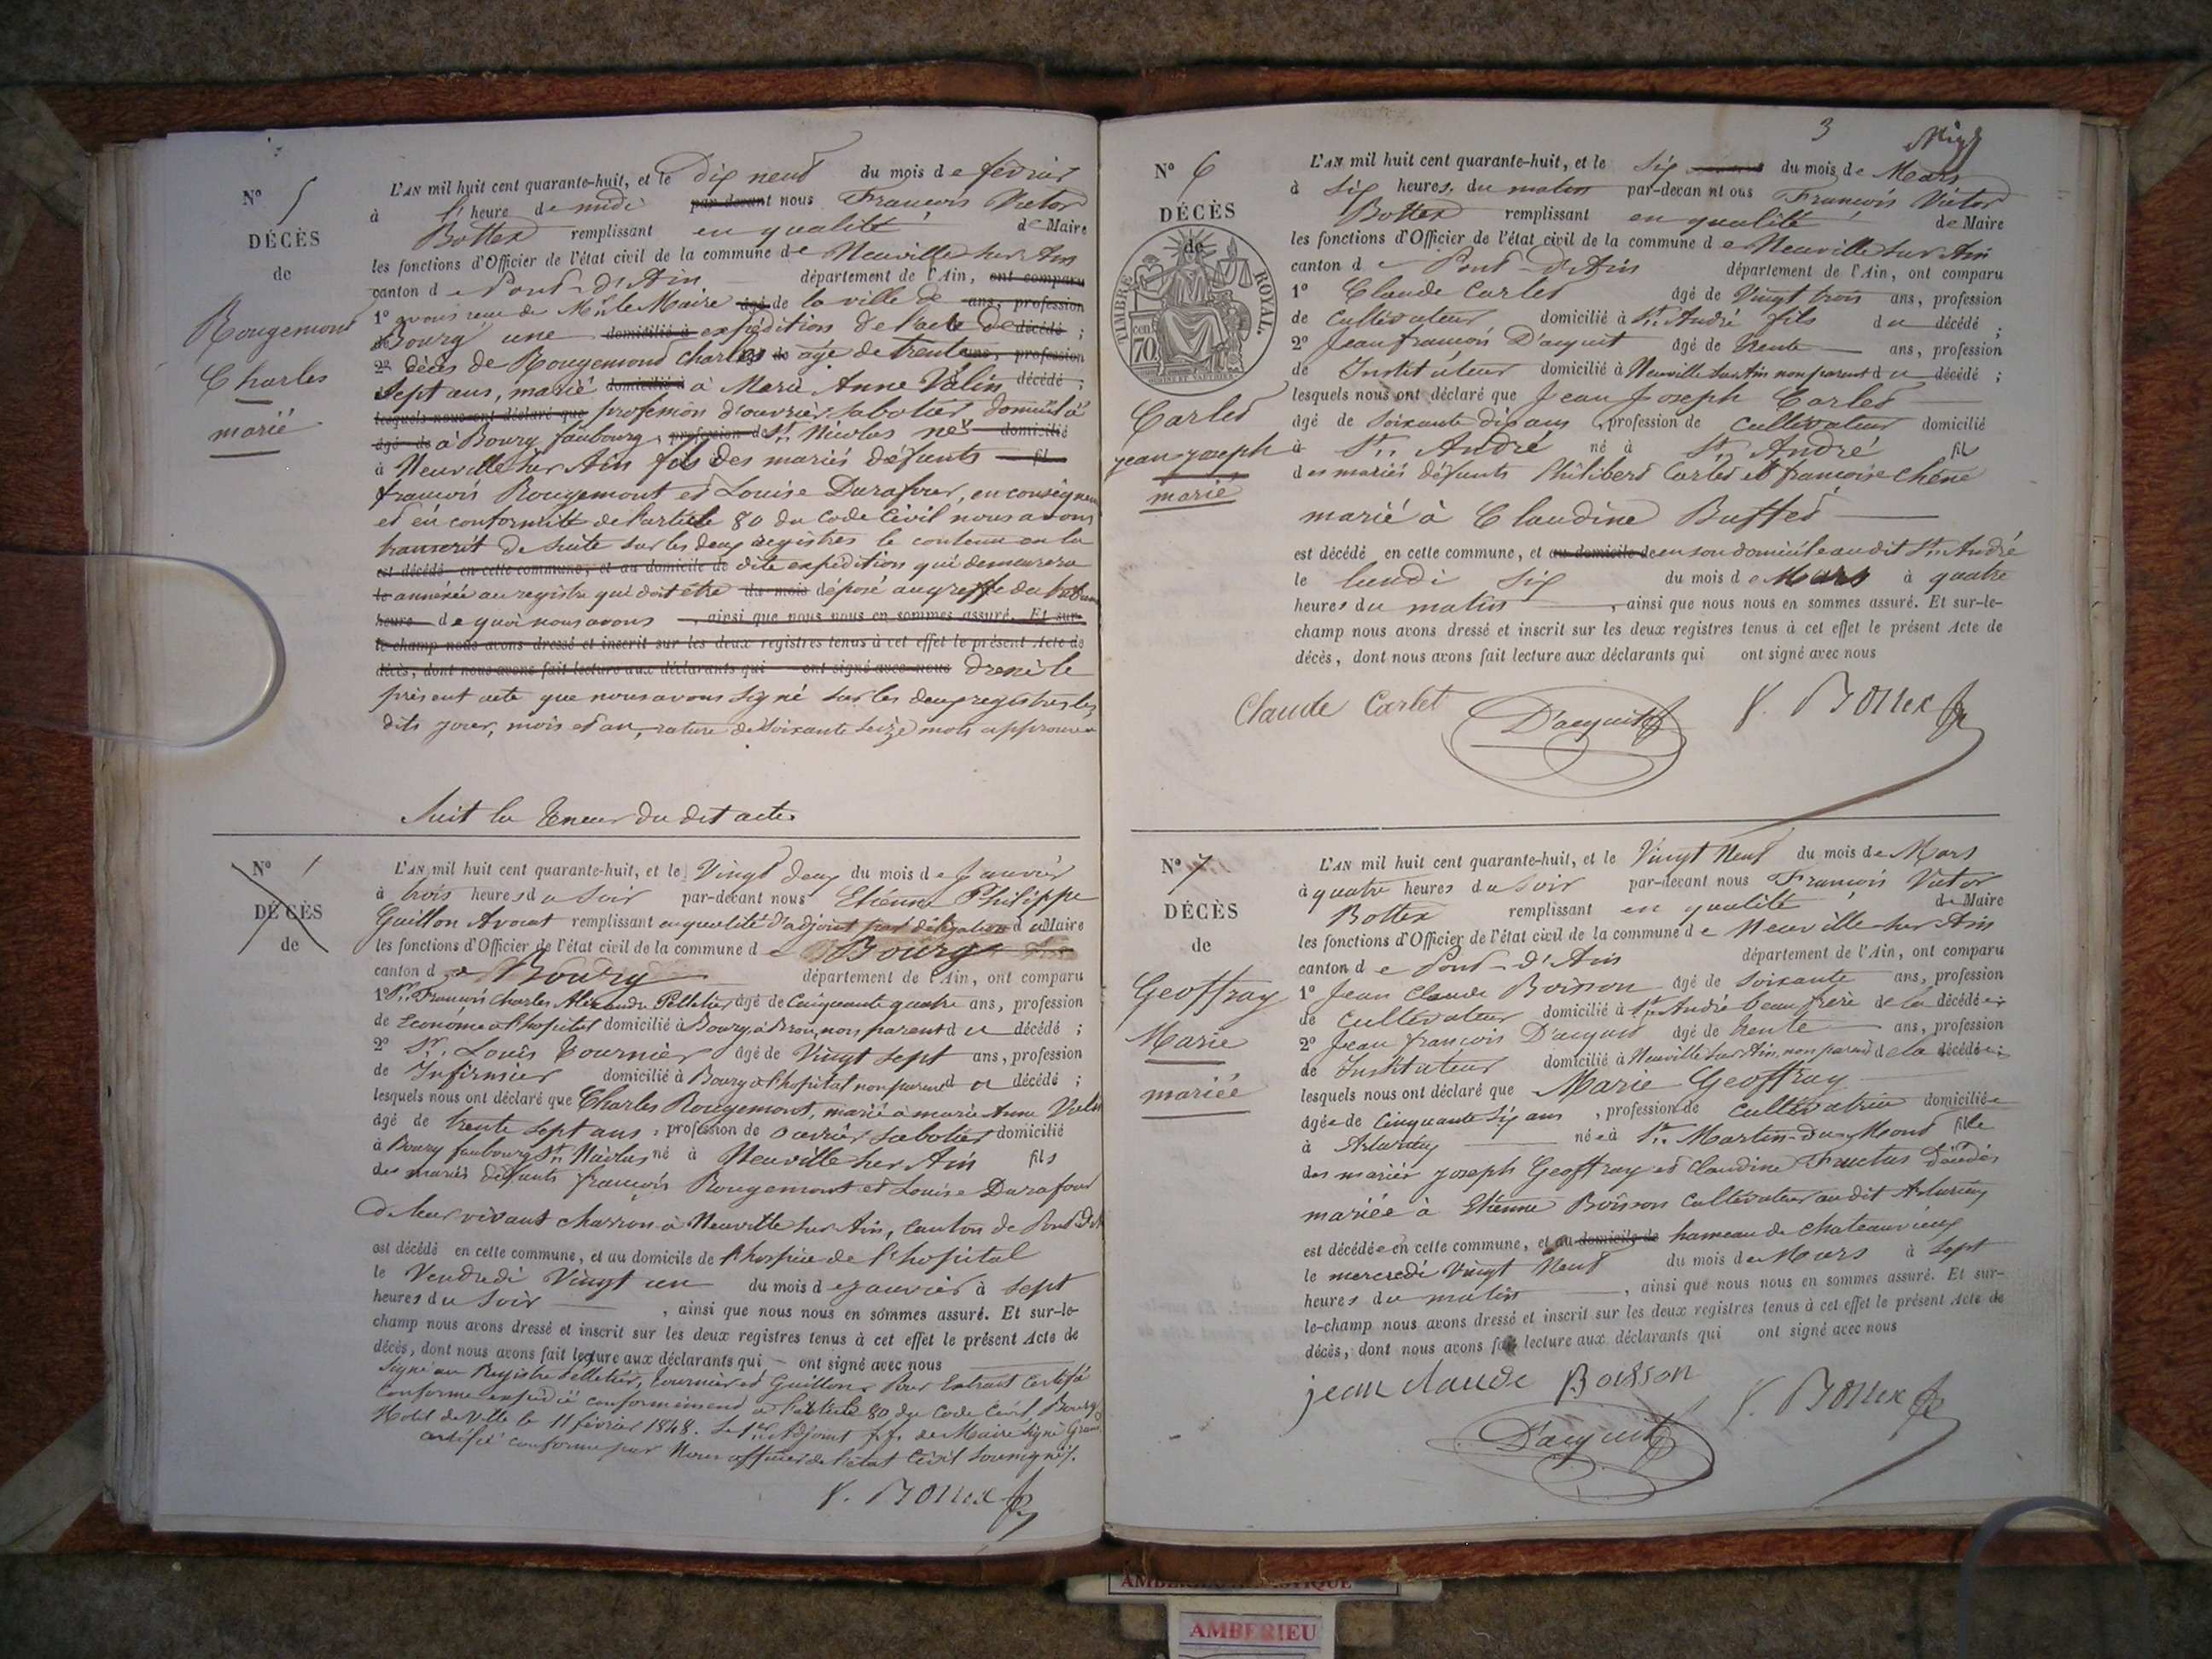 N° 5
DÉCÈS
de
Rougemont
Charles
marié
L'AN mil huit cent quarante-huit, et le Dix neuf du mois de février
à l' heure de midi par-devant nous François Victor
Bottex remplissant en qualité de Maire
les fonctions d'Officier de l'état civil de la commune de Neuville sur Ain
canton de Pont-d'Ain département de l'Ain, ont comparu
1° avons reçu de Mr. le Maire âgé de la ville de ans, profession
de Bourg une domicilié à expédition de l'acte de décédé ;
2° décès de Rougemont Charles de âgé de trente ans, profession
sept ans, marié domicilié à à Marie Anne Velin décédé ;
lesquels nous ont déclaré que profession d'ouvrier sabotier, domicilié
âgé de à Bourg faubourg, profession de St. Nicolas né domicilié
à Neuville sur Ain fils des mariés défunts fil
françois Rougemont et Louise Durafour, en conséquence
et en conformité de l'article 80 du Code Civil nous avons
transcrit de suite sur les deux registres le contenu en la
est décédé en cette commune, et au domicile de dite expédition qui demeurera
le annexée au registre qui doit être du mois déposé au greffe du
heure de quoi nous avons , ainsi que nous nous en sommes assuré. Et sur-
le-champ nous avons dressé et inscrit sur les deux registres tenus à cet effet le présent Acte de
décès, dont nous avons fait lecture aux déclarants qui ont signé avec nous dressé le
présent acte que nous avons signé sur les deux registres les
dits jour, mois et an, rature de soixante seize mots approuvée
Suit la teneur du dit acte
N° 1
DÉCÈS
de
L'AN mil huit cent quarante-huit, et le Vingt deux du mois de Janvier
à trois heures du soir par-devant nous Etienne Philippe
Guillon Avocat remplissant en qualité d'adjoint par délégation du Maire
les fonctions d'Officier de l'état civil de la commune de Bourg
canton de Bourg département de l'Ain, ont comparu
1° Sr. François Charles Alexandre Pelletier âgé de Cinquante quatre ans, profession
de Econome à l'hopital domicilié à Bourg, à Brou, non parent du décédé ;
2° Sr. Louis Tournier âgé de Vingt sept ans, profession
de Infirmier domicilié à Bourg à l'hopital non parent du décédé ;
lesquels nous ont déclaré que Charles Rougemont, marié à marie Anne Velin
âgé de trente sept ans, profession de ouvrier sabotier domicilié
à Bourg faubourg St. Nicolas né à Neuville sur Ain fils
des mariés défunts françois Rougemont et Louise Durafour
de leur vivant charron à Neuville sur Ain, canton de Pont d'Ain
est décédé en cette commune, et au domicile de l'hospice de l'hopital
le Vendredi Vingt un du mois de janvier à sept
heures du soir , ainsi que nous nous en sommes assuré. Et sur-le-
champ nous avons dressé et inscrit sur les deux registres tenus à cet effet le présent Acte de
décès, dont nous avons fait lecture aux déclarants qui ont signé avec nous
Signé au Registre Pelletier, Tournier et Guillon. Pour Extrait certifié
conforme expédié conformément à l'article 80 du Code Civil, Bourg
Hotel de Ville le 11 février 1848. Le 1er Adjoint f.f. de Maire signé
certifié conforme par Nous officier de l'état Civil soussigné.
V. Bottex
3
N° 6
DÉCÈS
de
TIMBRE ROYAL.
70 cen
Carlet
jean joseph
marié
L'AN mil huit cent quarante-huit, et le Six du mois de Mars
à six heures du matin par-devant nous François Victor
Bottex remplissant en qualité de Maire
les fonctions d'Officier de l'état civil de la commune de Neuville sur Ain
canton de Pont-d'Ain département de l'Ain, ont comparu
1° Claude Carlet âgé de Vingt trois ans, profession
de Cultivateur domicilié à St. André fils du décédé ;
2° Jean françois D'acquit âgé de trente ans, profession
de Instituteur domicilié à Neuville sur Ain non parent du décédé ;
lesquels nous ont déclaré que Jean Joseph Carlet
âgé de Soixante dix ans, profession de Cultivateur domicilié
à St. André né à St. André fils
des mariés défunts Philibert Carlet et françoise Chêne
marié à Claudine Buffet
est décédé en cette commune, et au domicile de en son domicile audit St. André
le lundi six du mois de Mars à quatre
heures du matin , ainsi que nous nous en sommes assuré. Et sur-le-
champ nous avons dressé et inscrit sur les deux registres tenus à cet effet le présent Acte de
décès, dont nous avons fait lecture aux déclarants qui ont signé avec nous
Claude Carlet D'acquit V. Bottex
N° 7
DÉCÈS
de
Geoffray
Marie
mariée
L'AN mil huit cent quarante-huit, et le Vingt Neuf du mois de Mars
à quatre heures du soir par-devant nous François Victor
Bottex remplissant en qualité de Maire
les fonctions d'Officier de l'état civil de la commune de Neuville sur Ain
canton de Pont-d'Ain département de l'Ain, ont comparu
1° Jean Claude Boisson âgé de soixante ans, profession
de Cultivateur domicilié à St. André beau frère de la décédée ;
2° Jean françois D'acquit âgé de trente ans, profession
de Instituteur domicilié à Neuville sur Ain, non parent de la décédée ;
lesquels nous ont déclaré que Marie Geoffray
âgée de Cinquante six ans, profession de Cultivatrice domiciliée
à née à St. Martin-du-Mont fille
des mariés joseph Geoffray et Claudine Fructus décédés
mariée à Etienne Boisson Cultivateur audit
est décédée en cette commune, et au domicile de hameau de Chateauvieux
le mercredi Vingt Neuf du mois de Mars à sept
heures du matin , ainsi que nous nous en sommes assuré. Et sur-
le-champ nous avons dressé et inscrit sur les deux registres tenus à cet effet le présent Acte de
décès, dont nous avons fait lecture aux déclarants qui ont signé avec nous
jean claude Boisson
D'acquit V. Bottex
AMBERIEU